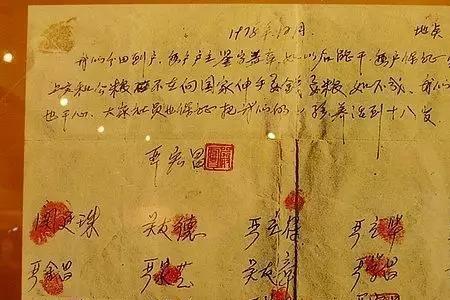 1978年12月. 地点
我们分田到户,每户户主签字盖章,如以后能干,每户保证
上交和公粮 不在向国家伸手要钱要粮 如不成,我们
也干心,大家社员也保证把我们的小孩养活到十八岁。
严宏昌
关廷珠 关友德 严立付 严立华
严金昌 严家芝 关友章 严学昌